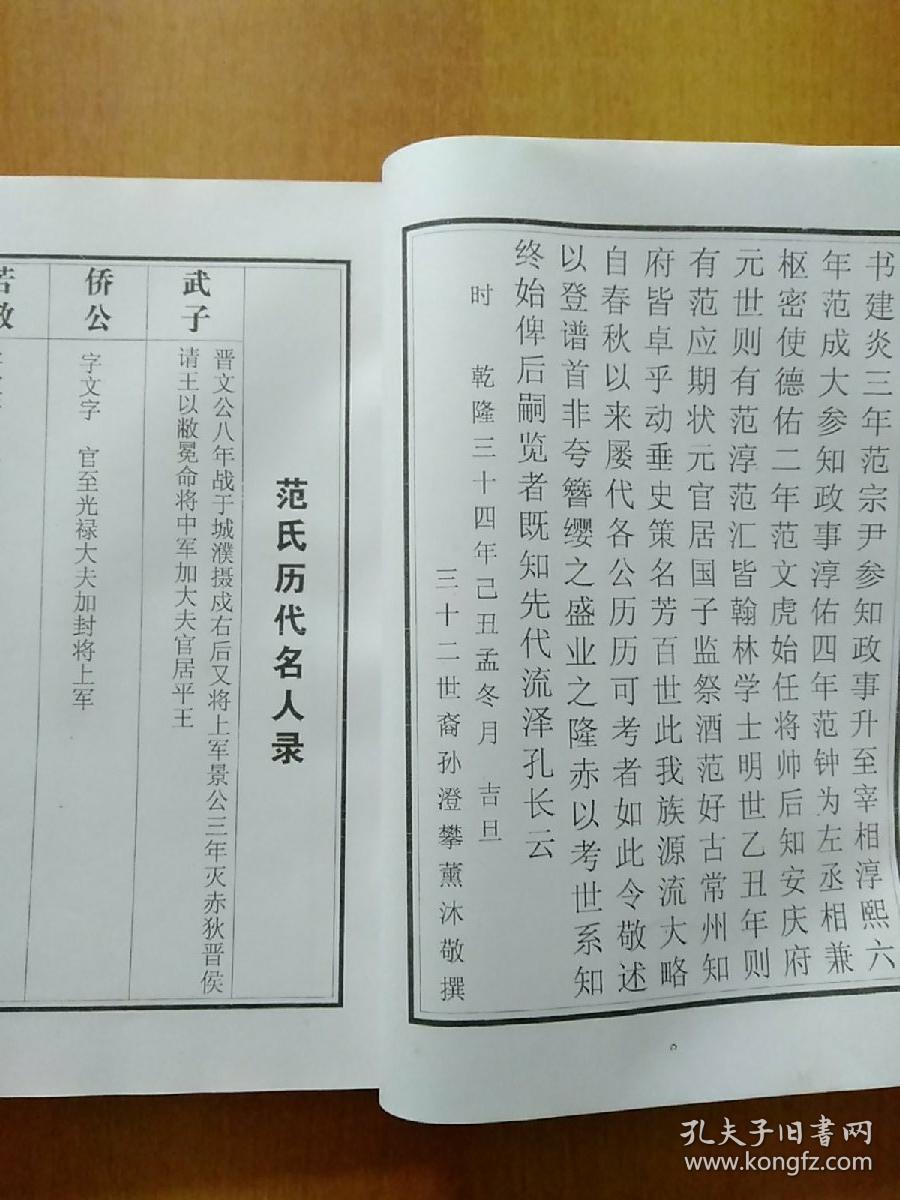 书建炎三年范宗尹参知政事升至宰相淳熙六
年范成大参知政事淳佑四年范钟为左丞相兼
枢密使德佑二年范文虎始任将帅后知安庆府
元世则有范淳范汇皆翰林学士明世乙丑年则
有范应期状元官居国子监祭酒范好古常州知
府皆卓乎动垂史策名芳百世此我族源流大略
自春秋以来屡代各公历历可考者如此令敬述
以登谱首非夸簪缨之盛业之隆赤以考世系知
终始俾后嗣览者既知先代流泽孔长云
时 乾隆三十四年己丑孟冬月 吉旦
三十二世裔孙澄攀薰沐敬撰
范氏历代名人录
武子
晋文公八年战于城濮摄戍右后又将上军景公三年灭赤狄晋侯
请王以敝冕命将中军加大夫官居平王
侨公
字文字 官至光禄大夫加封将上军
孔夫子旧书网
www.kongfz.com